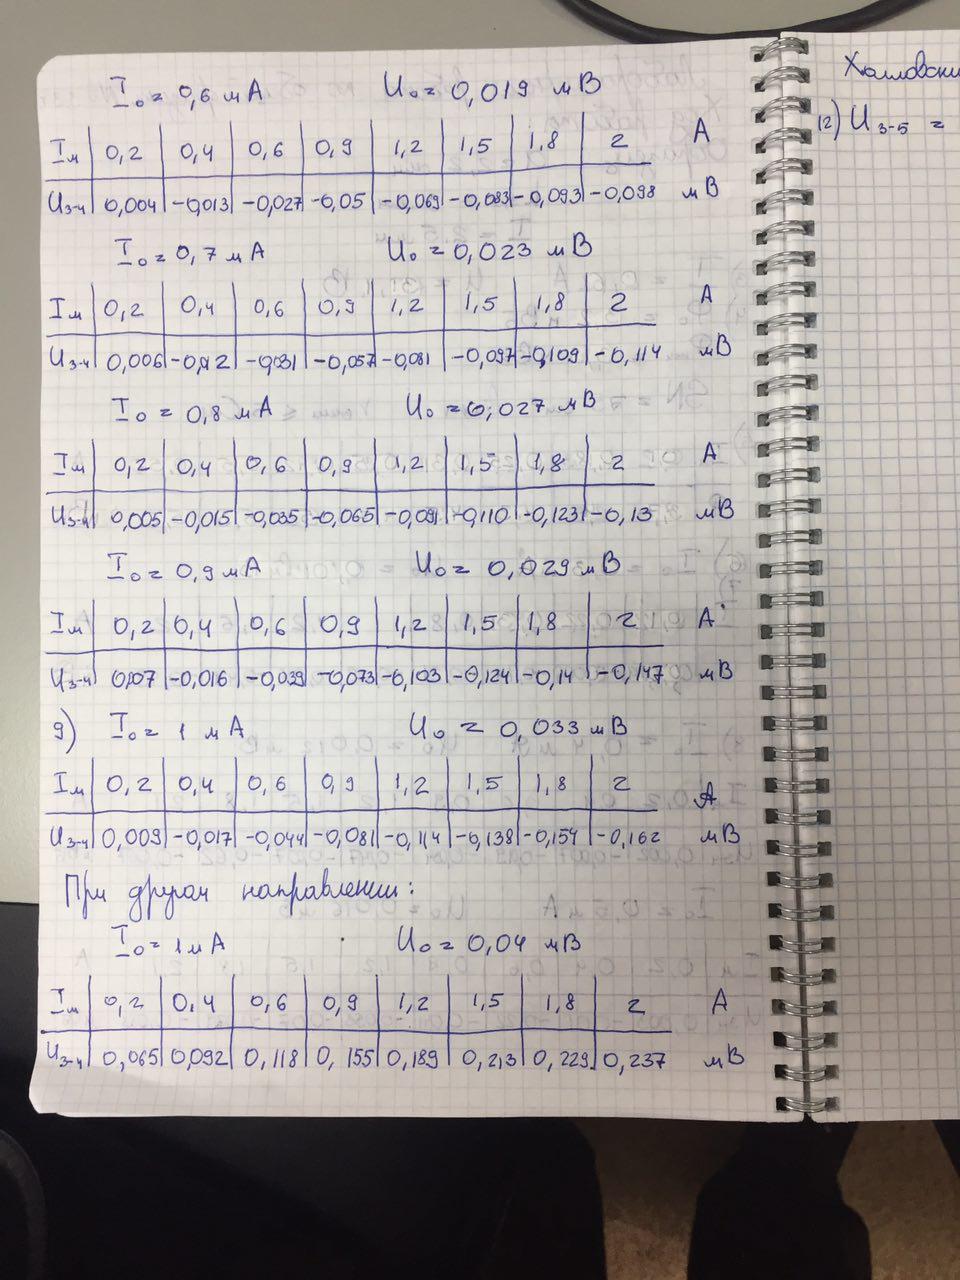 I₀ = 0,6 мА U₀ = 0,019 мВ
Iм 0,2 0,4 0,6 0,9 1,2 1,5 1,8 2 А
U₃₋₄ 0,004 -0,013 -0,027 -0,05 -0,069 -0,083 -0,093 -0,098 мВ
I₀ = 0,7 мА U₀ = 0,023 мВ
Iм 0,2 0,4 0,6 0,9 1,2 1,5 1,8 2 А
U₃₋₄ 0,006 -0,012 -0,031 -0,057 -0,081 -0,097 -0,109 -0,114 мВ
I₀ = 0,8 мА U₀ = 0,027 мВ
Iм 0,2 0,4 0,6 0,9 1,2 1,5 1,8 2 А
U₃₋₄ 0,005 -0,015 -0,035 -0,065 -0,091 -0,110 -0,123 -0,13 мВ
I₀ = 0,9 мА U₀ = 0,029 мВ
Iм 0,2 0,4 0,6 0,9 1,2 1,5 1,8 2 А
U₃₋₄ 0,007 -0,016 -0,039 -0,073 -0,103 -0,124 -0,14 -0,147 мВ
9) I₀ = 1 мА U₀ = 0,033 мВ
Iм 0,2 0,4 0,6 0,9 1,2 1,5 1,8 2 А
U₃₋₄ 0,009 -0,017 -0,044 -0,081 -0,114 -0,138 -0,154 -0,162 мВ
При другом направлении:
I₀ = 1 мА U₀ = 0,04 мВ
Iм 0,2 0,4 0,6 0,9 1,2 1,5 1,8 2 А
U₃₋₄ 0,065 0,092 0,118 0,155 0,189 0,213 0,229 0,237 мВ
12) U₃₋₅ =